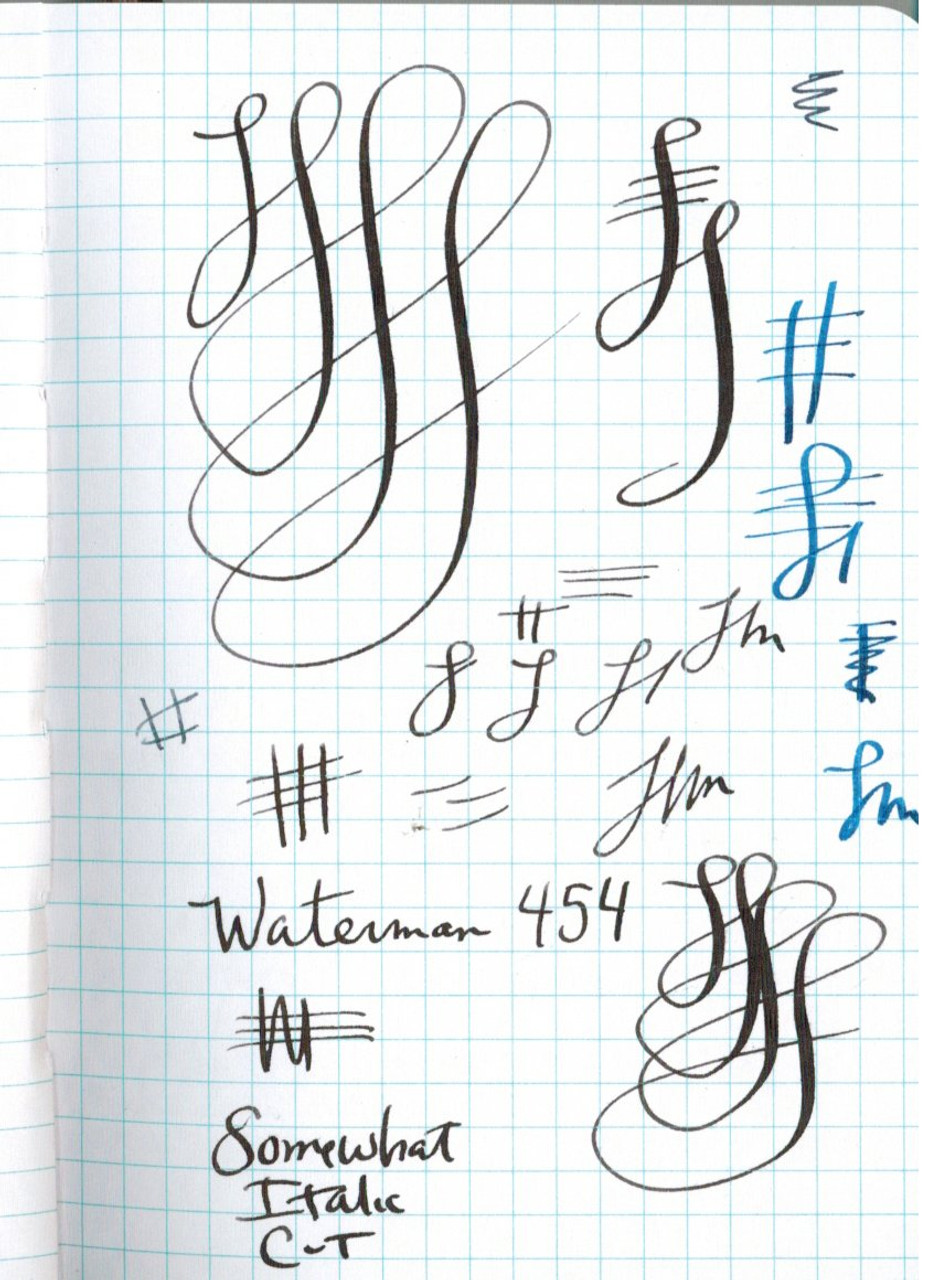 Waterman 454
Somewhat
Italic
C-T